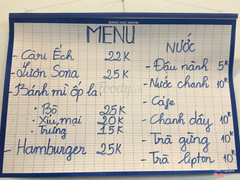 MENU
- Cari Ếch 22K
- Lươn Sona 25K
- Bánh mì ốp la:
• Bò 25K
• Xíu mại 20K
• Trứng 15K
- Hamburger 25K
NƯỚC
- Đậu nành 5K
- Nước chanh 10K
- Cafe
- Chanh dây 10K
- Trà gừng 10K
- Trà lipton 10K